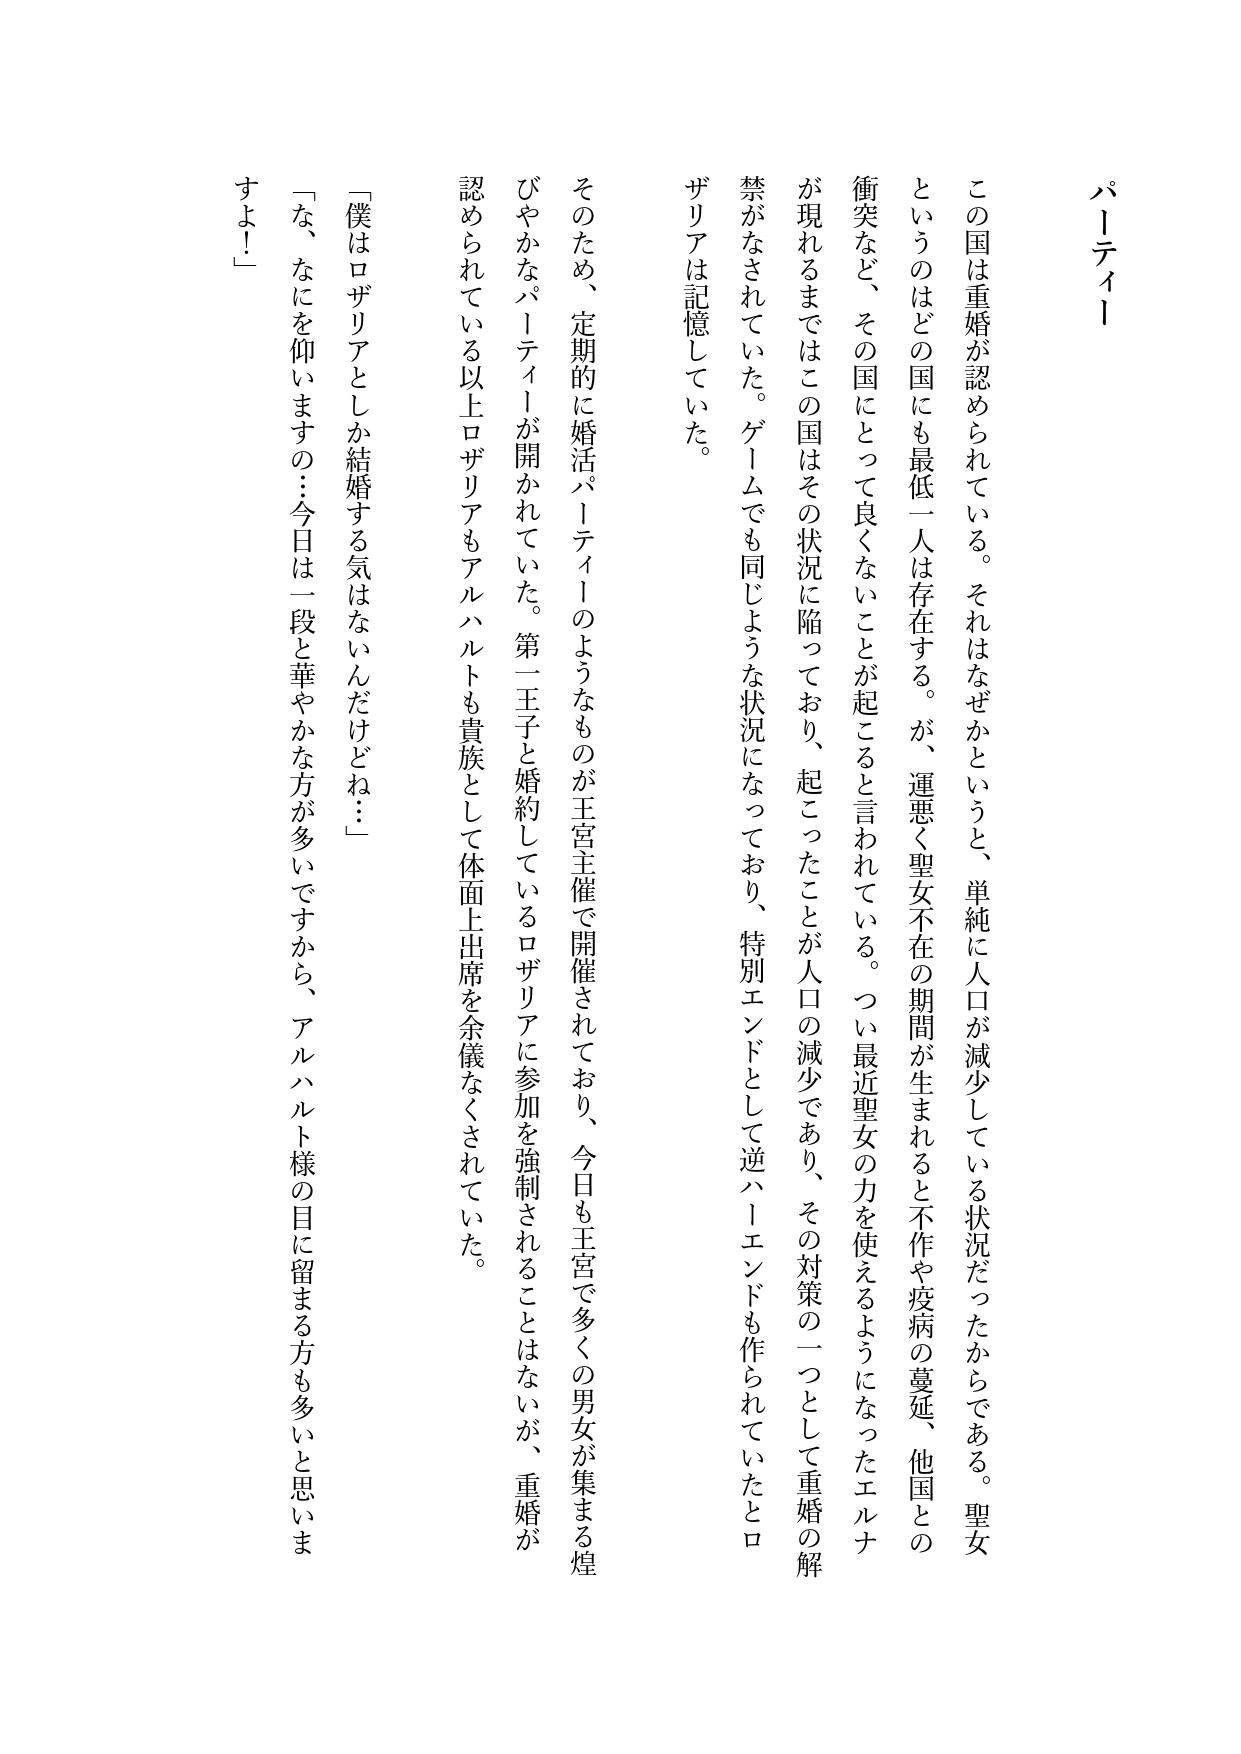 パーティー
この国は重婚が認められている。それはなぜかというと、単純に人口が減少している状況だったからである。聖女
というのはどの国にも最低一人は存在する。が、運悪く聖女不在の期間が生まれると不作や疫病の蔓延、他国との
衝突など、その国にとって良くないことが起こると言われている。つい最近聖女の力を使えるようになったエルナ
が現れるまではこの国はその状況に陥っており、起こったことが人口の減少であり、その対策の一つとして重婚の解
禁がなされていた。ゲームでも同じような状況になっており、特別エンドとして逆ハーエンドも作られていたとロ
ザリアは記憶していた。
そのため、定期的に婚活パーティーのようなものが王宮主催で開催されており、今日も王宮で多くの男女が集まる煌
びやかなパーティーが開かれていた。第一王子と婚約しているロザリアに参加を強制されることはないが、重婚が
認められている以上ロザリアもアルハルトも貴族として体面上出席を余儀なくされていた。
「僕はロザリアとしか結婚する気はないんだけどね…」
「な、なにを仰いますの…今日は一段と華やかな方が多いですから、アルハルト様の目に留まる方も多いと思いま
すよ！」